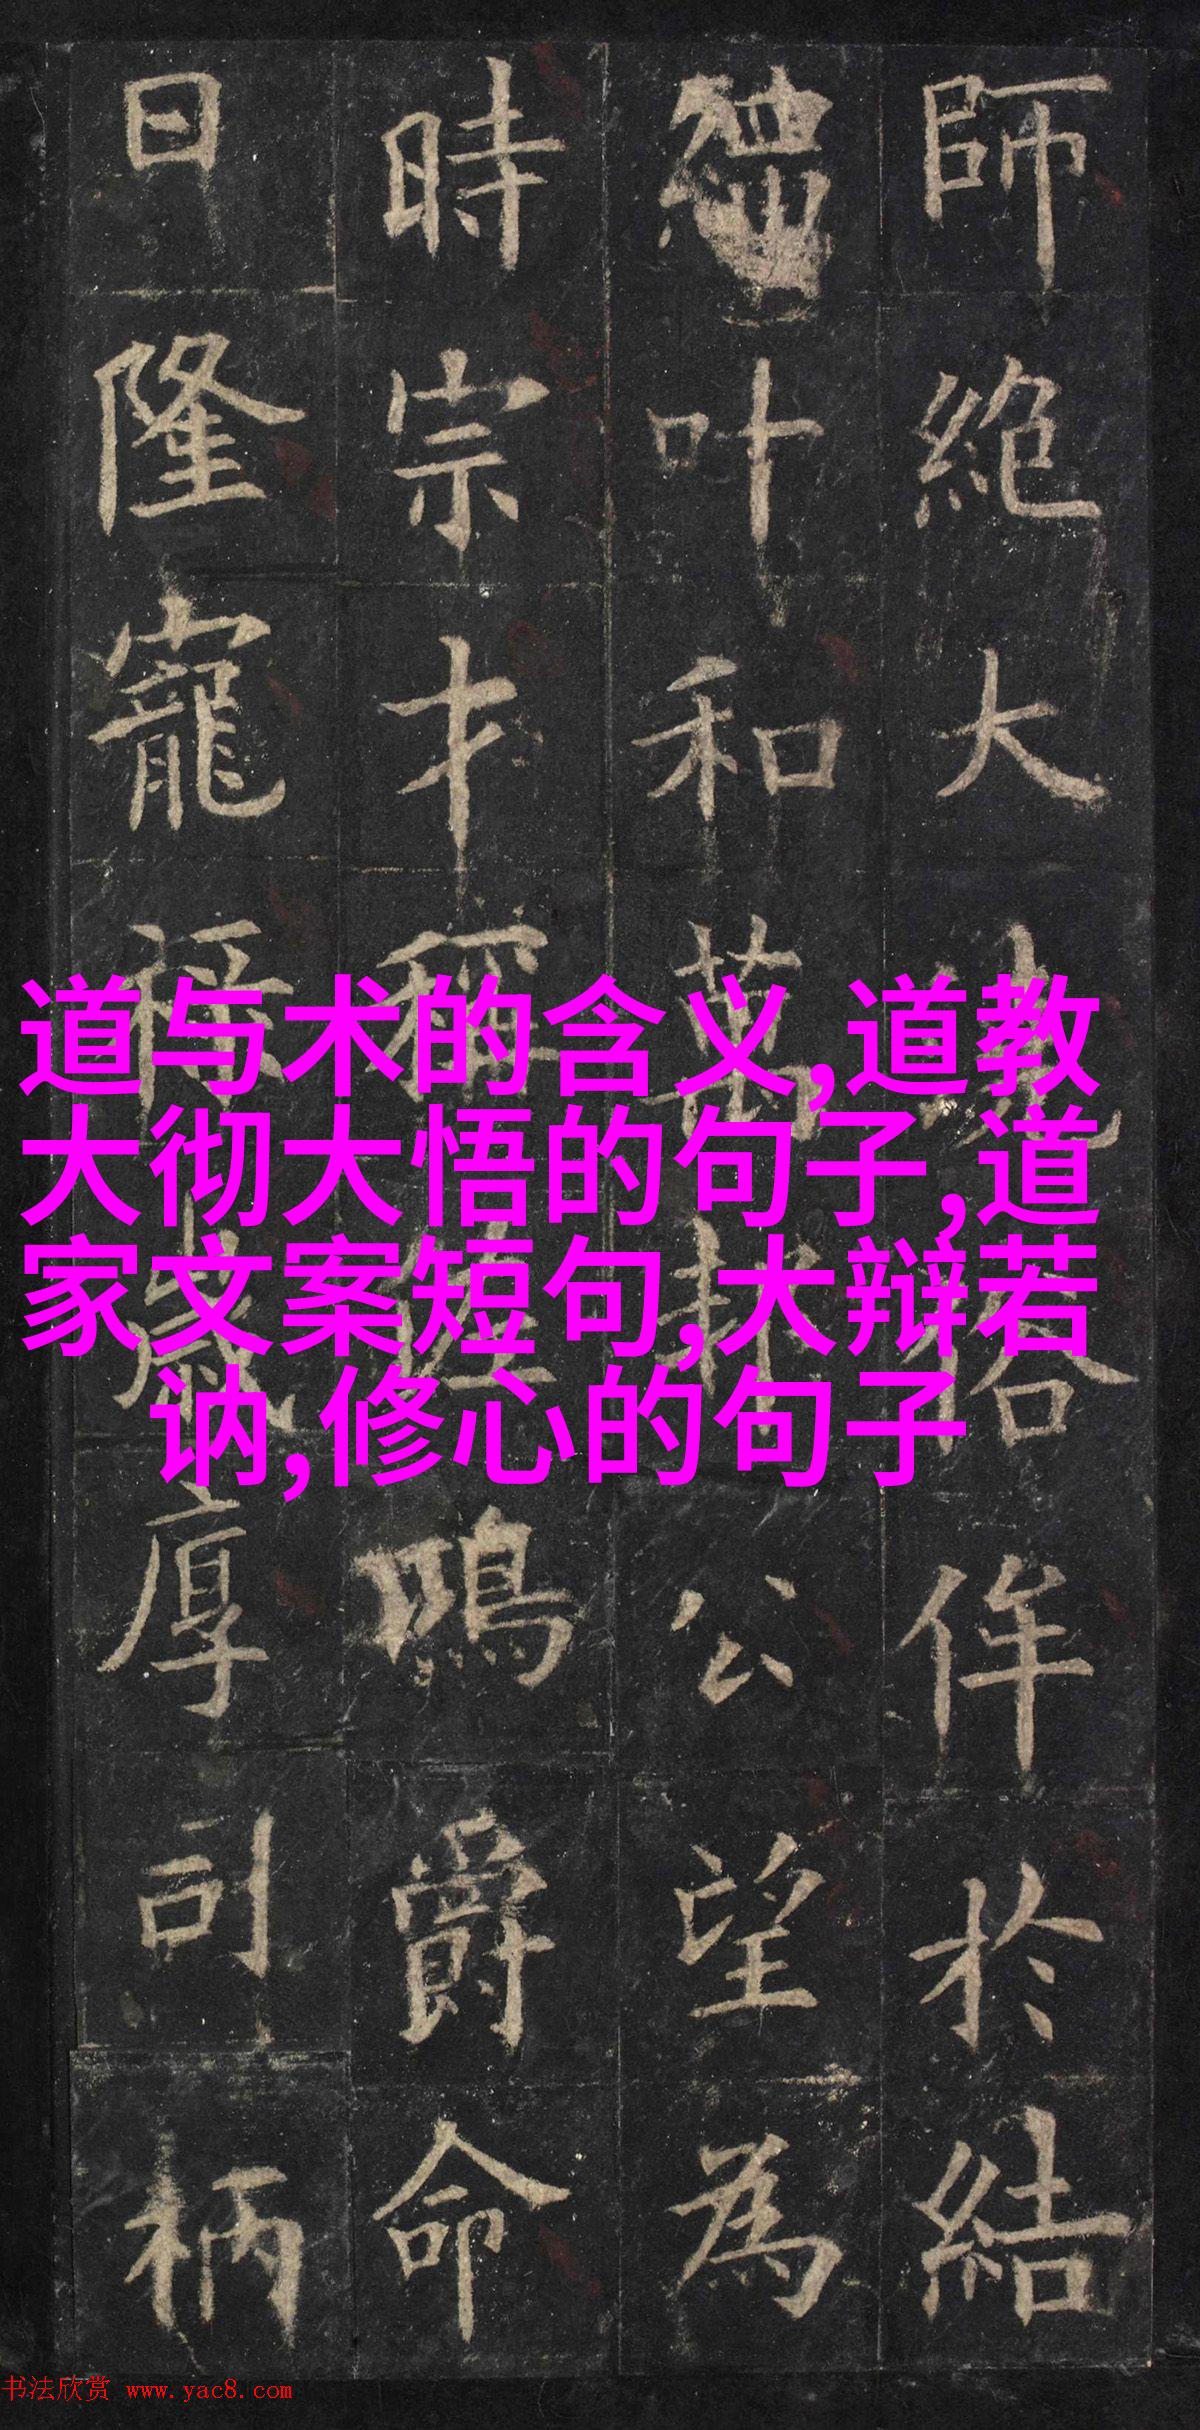 師絶大侔於結
叶和萬公望為
時宗才稱鳴爵命
日隆寵祿歲厚司柄
道与术的含义,道教
大彻大悟的句子,道
家文案短句,大辩若
讷,修心的句子
书法欣赏 www.yac8.com